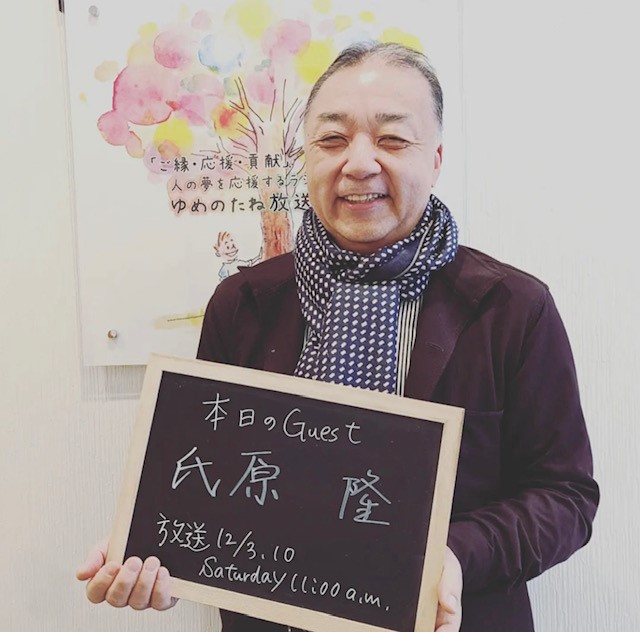 「ご縁・応援・貢献」
人の夢を応援するラジ
ゆめのたね放送
本日のGuest
氏原 隆
放送 12/3.10
Saturday 11:00 a.m.